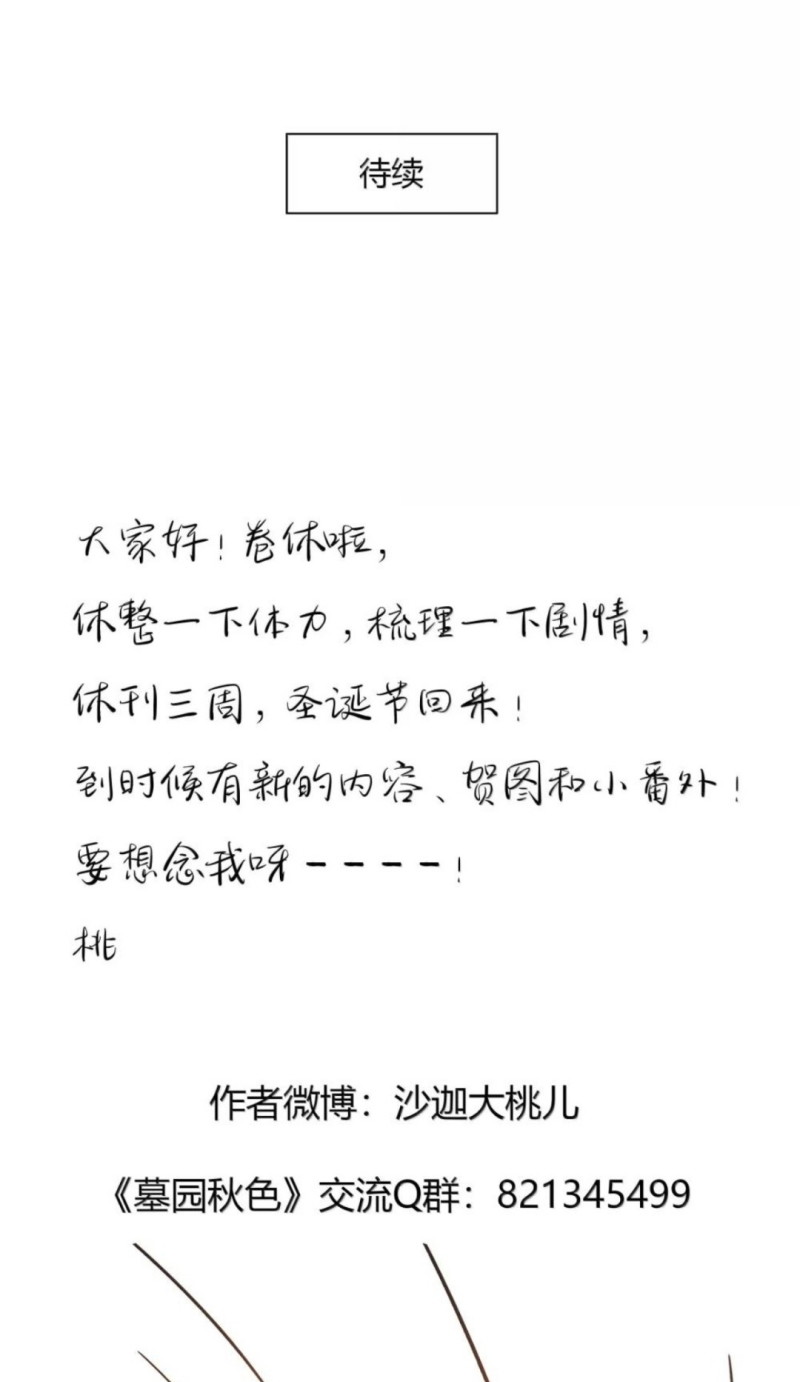 待续
大家好！卷休啦，
休整一下体力，梳理一下剧情，
休刊三周，圣诞节回来！
到时候有新的内容、贺图和小番外！
要想念我呀————！
桃
作者微博：沙迦大桃儿
《墓园秋色》交流Q群：821345499